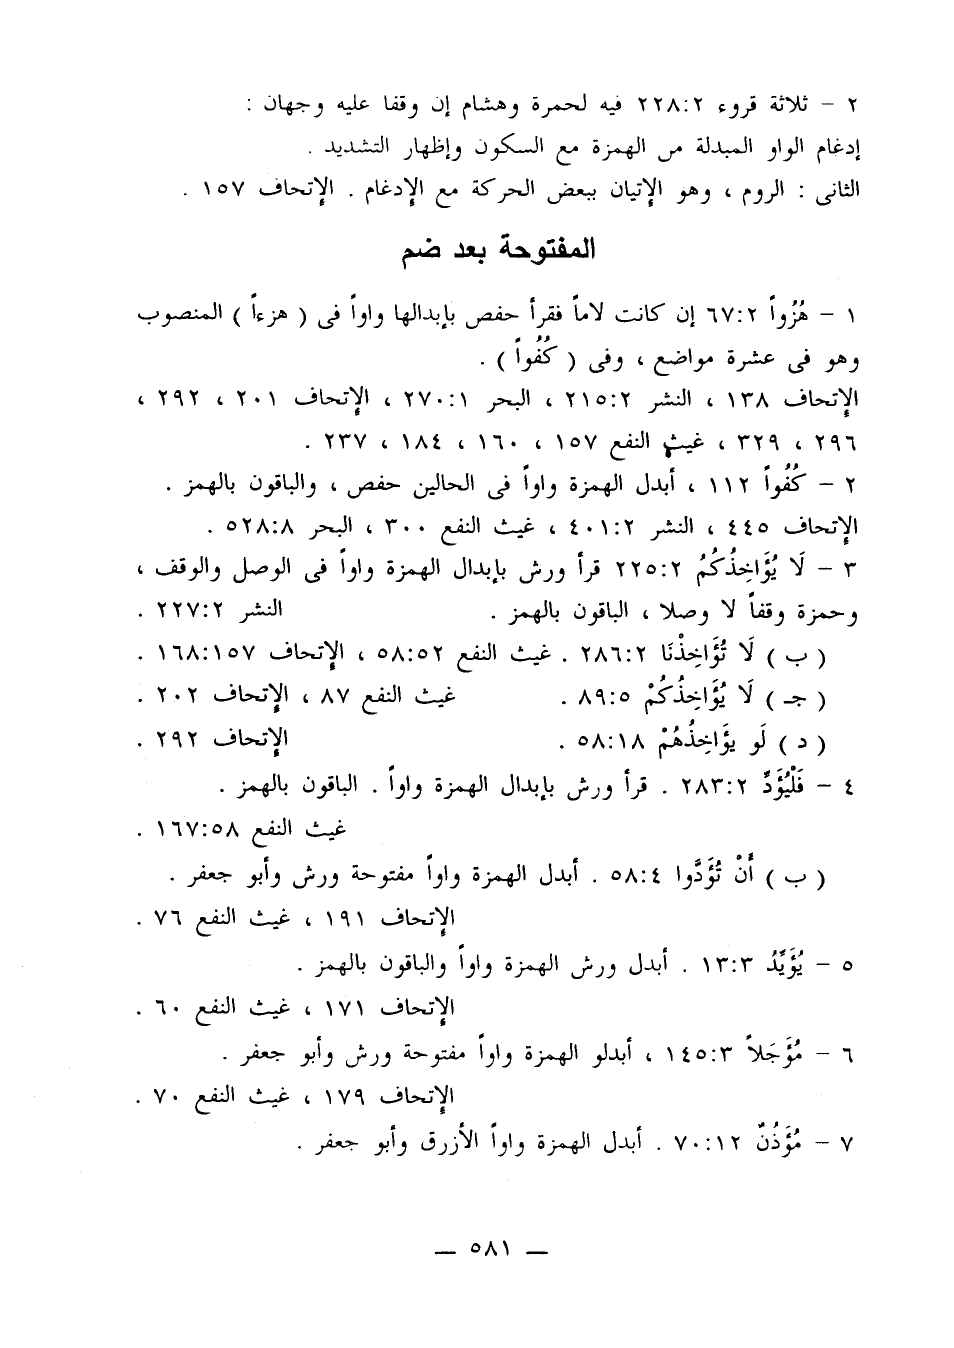 ٢ – ثلاثة قروء ٢٢٨:٢ فيه لحمرة وهشام إن وقفا عليه وجهان :
إدغام الواو المبدلة من الهمزة مع السكون وإظهار التشديد .
الثانى : الروم ، وهو الإتيان ببعض الحركة مع الإدغام . الإتحاف ١٥٧ .
المفتوحة بعد ضم
١ – هُزُواً ٦٧:٢ إن كانت لاماً فقرأ حفص بإبدالها واواً فى ( هزءاً ) المنصوب
وهو فى عشرة مواضع ، وفى ( كُفُواً ) .
الإتحاف ١٣٨ ، النشر ٢١٥:٢ ، البحر ٢٧٠:١ ، الإتحاف ٢٠١ ، ٢٩٢ ،
٢٩٦ ، ٣٢٩ ، غيث النفع ١٥٧ ، ١٦٠ ، ١٨٤ ، ٢٣٧ .
٢ – كُفُواً ١١٢ ، أبدل الهمزة واواً فى الحالين حفص ، والباقون بالهمز .
الإتحاف ٤٤٥ ، النشر ٤٠١:٢ ، غيث النفع ٣٠٠ ، البحر ٥٢٨:٨ .
٣ – لَا يُؤَاخِذُكُمُ ٢٢٥:٢ قرأ ورش بإبدال الهمزة واواً فى الوصل والوقف ،
وحمزة وقفاً لا وصلا ، الباقون بالهمز . النشر ٢٢٧:٢ .
( ب ) لَا تُؤَاخِذْنَا ٢٨٦:٢ . غيث النفع ٥٨:٥٢ ، الإتحاف ١٦٨:١٥٧ .
( جـ ) لَا يُؤَاخِذُكُمْ ٨٩:٥ . غيث النفع ٨٧ ، الإتحاف ٢٠٢ .
( د ) لَو يؤَاخِذُهُمْ ٥٨:١٨ . الإتحاف ٢٩٢ .
٤ – فَلْيُؤَدِّ ٢٨٣:٢ . قرأ ورش بإبدال الهمزة واواً . الباقون بالهمز .
غيث النفع ١٦٧:٥٨ .
( ب ) أَنْ تُؤَدُّوا ٥٨:٤ . أبدل الهمزة واواً مفتوحة ورش وأبو جعفر .
الإتحاف ١٩١ ، غيث النفع ٧٦ .
٥ – يُؤَيِّدُ ١٣:٣ . أبدل ورش الهمزة واواً والباقون بالهمز .
الإتحاف ١٧١ ، غيث النفع ٦٠ .
٦ – مُؤَجَلاً ١٤٥:٣ ، أبدلو الهمزة واواً مفتوحة ورش وأبو جعفر .
الإتحاف ١٧٩ ، غيث النفع ٧٠ .
٧ – مُؤَذُنٌ ٧٠:١٢ . أبدل الهمزة واواً الأزرق وأبو جعفر .
— ٥٨١ —